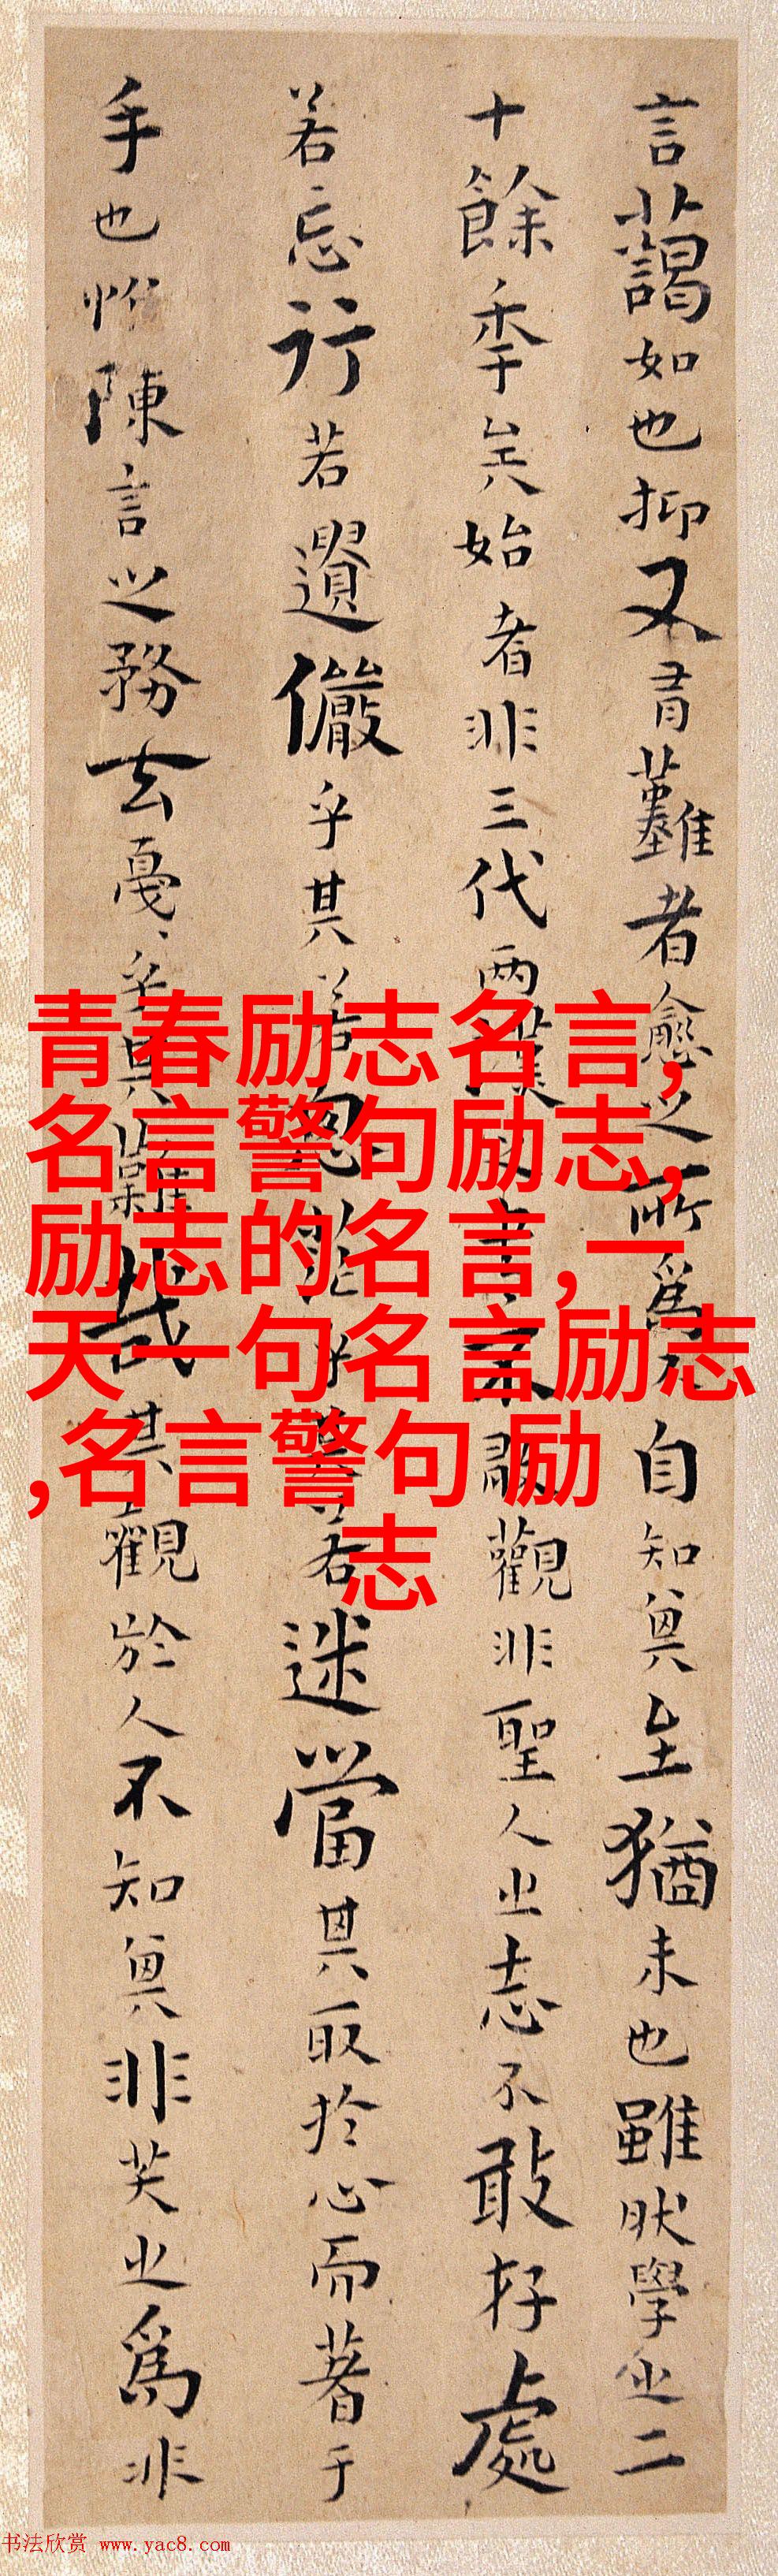 言藹如也抑又有難者愈之所為不自知其至猶未也雖然學之二
十餘年矣始者非三代兩漢之書不敢觀非聖人之志不敢存處
若忘行若遺儼乎其若思茫乎其若迷當其取於心而著于
手也惟陳言之務去戛戛乎其難哉其觀於人不知其非笑之為非
青春励志名言,
名言警句励志,
励志的名言,一
天一句名言励志
,名言警句 励
志
书法欣赏 www.yac8.com